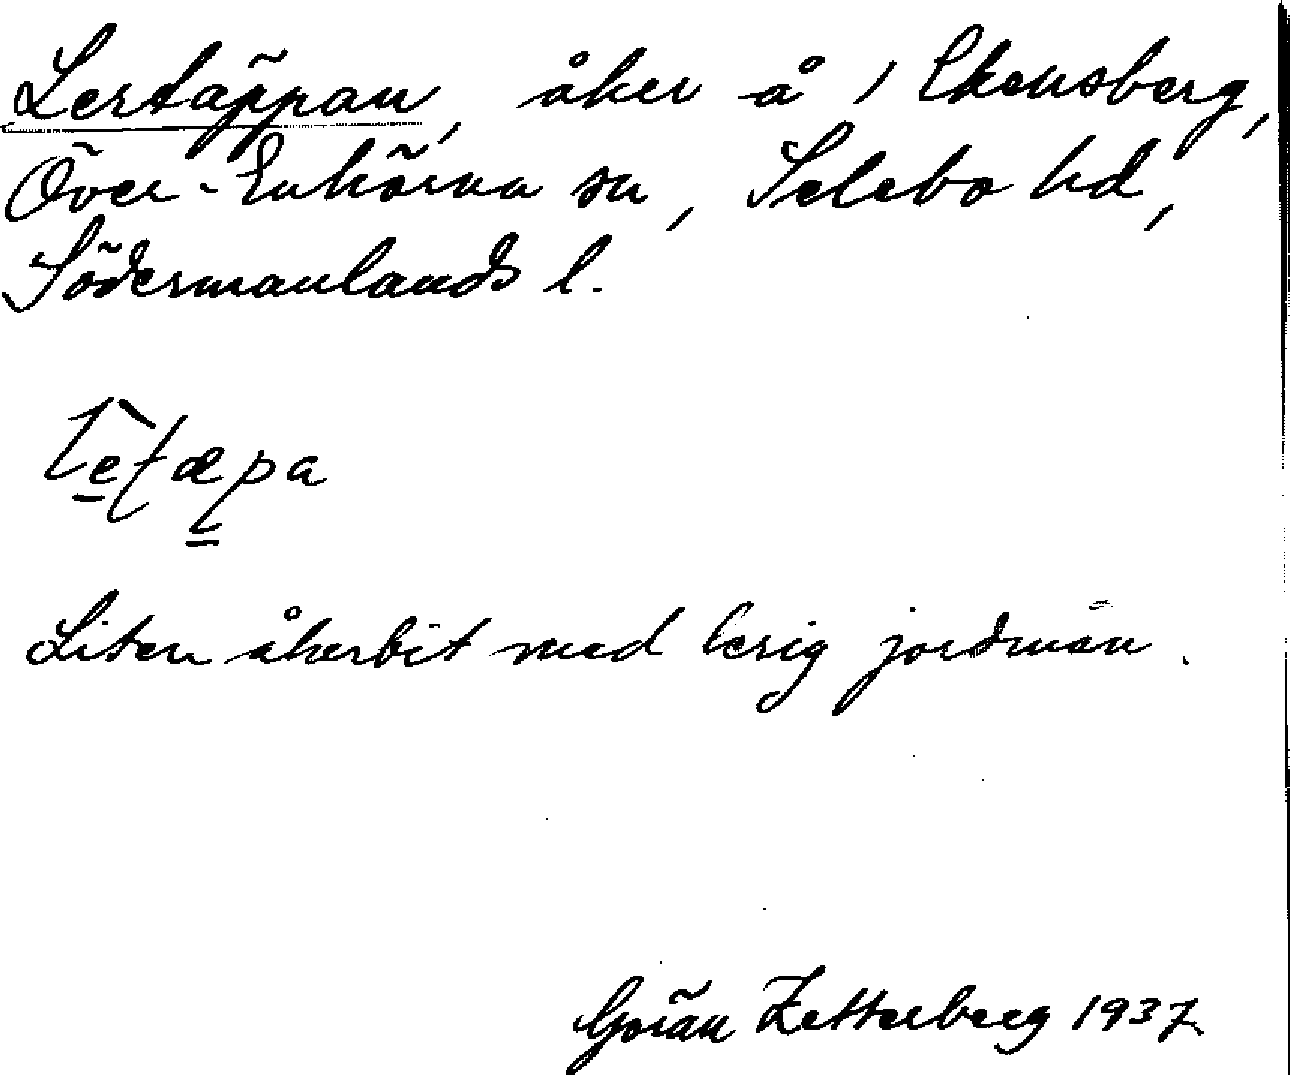 Lertäppan, åker å 1 Ekensberg,
Över-Enhörna sn, Selebo hd,
Södermanlands l.
Liten åkerbit med lerig jordmån.
Göran Zetterberg 1937